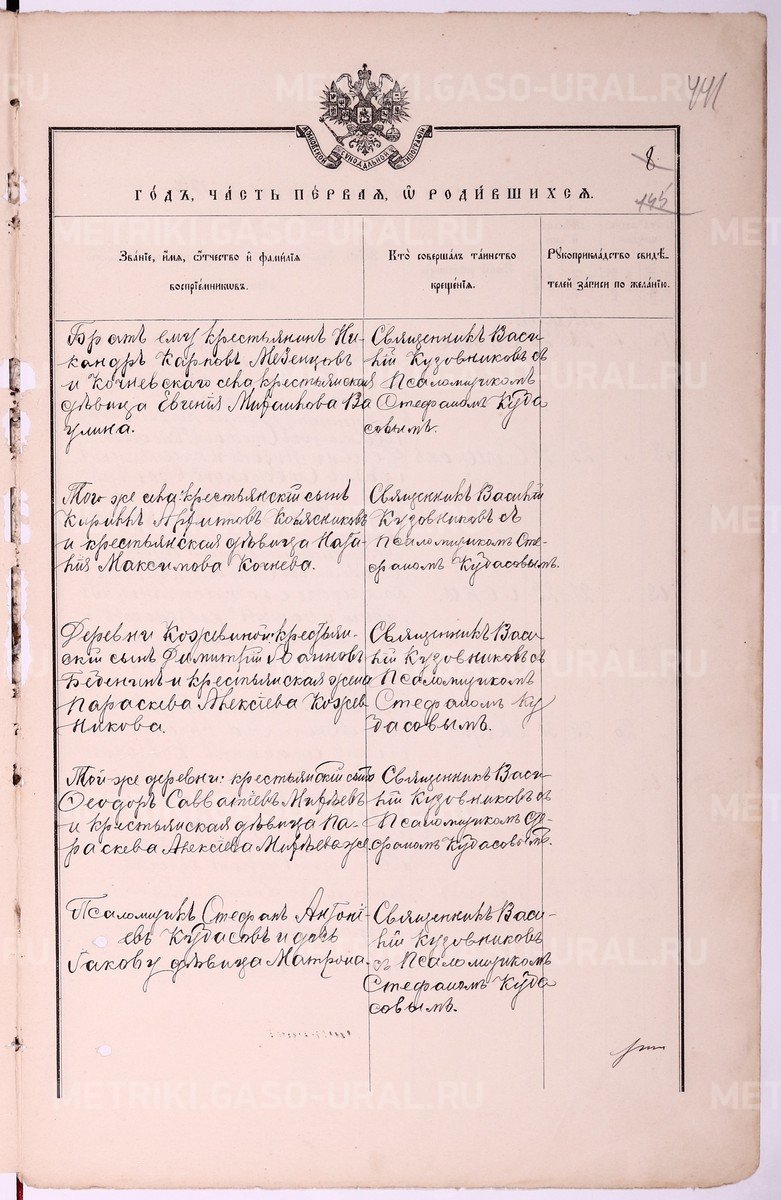 METRIKI.GASO-URAL.RU
441
МОСКОВСКОЙ СѴНОДАЛЬНОЙ ТИПОГРАФІИ
8
145
ГО́ДЪ, ЧА́СТЬ ПЕ́РВАЯ, Ѽ РОДИ́ВШИХСѦ.
Зва́нїе, и҆́мѧ, ѻ҆́тчество и҆ фами́лїѧ
воспрїе́мниковъ.
Кто̀ соверша́лъ та́инство
креще́нїѧ.
Рꙋкоприкла́дство свидѣ́-
телей за́писи по жела́нїю.
Братъ ему крестьянинъ Ни-
кандръ Карповъ Мезенцовъ
и Кочневскаго села крестьянская
дѣвица Евгенія Михаилова Ва
улина.
Священникъ Васи
лій Кузовниковъ съ
Псаломщикомъ
Стефаномъ Куда
совымъ.
Того же села: крестьянскій сынъ
Кириллъ Колясниковъ
и крестьянская дѣвица Ната-
лія Максимова Кочнева.
Священникъ Василій
Кузовниковъ съ
Псаломщикомъ Сте-
фаномъ Кудасовымъ.
Деревни Кожевиной: крестьян-
скій сынъ Димитрій Іоанновъ
и крестьянская жена
Параскева Алексіева Кожев
никова.
Священникъ Васи
лій Кузовниковъ съ
Псаломщикомъ
Стефаномъ Ку
дасовымъ.
Той же деревни: крестьянскій сынъ
Ѳеодоръ Савватіевъ Михѣевъ
и крестьянская дѣвица Па-
раскева Алексіева Михѣева же.
Священникъ Васи
лій Кузовниковъ съ
Псаломщикомъ Сте-
фаномъ Кудасовымъ.
Псаломщикъ Стефанъ Антоні
евъ Кудасовъ и дочь
Іакову дѣвица Матрона.
Священникъ Васи
лій Кузовниковъ
съ Псаломщикомъ
Стефаномъ Куда
совымъ.